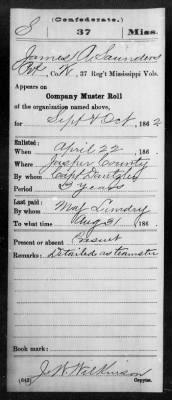 S (Confederate.) Miss.
37
James A Saunders
Pvt, Co. K, 37 Reg't Mississippi Vols.
Appears on
Company Muster Roll
of the organization named above,
for Sept & Oct, 1862
Enlisted:
When April 22, 186 .
Where Jasper County
By whom Capt
Period 3 years
Last paid:
By whom Maj
To what time Aug 31, 186 .
Present or absent Present
Remarks: Detailed as teamster
Book mark:
(642) J. W. Wilkinson
Copyist.